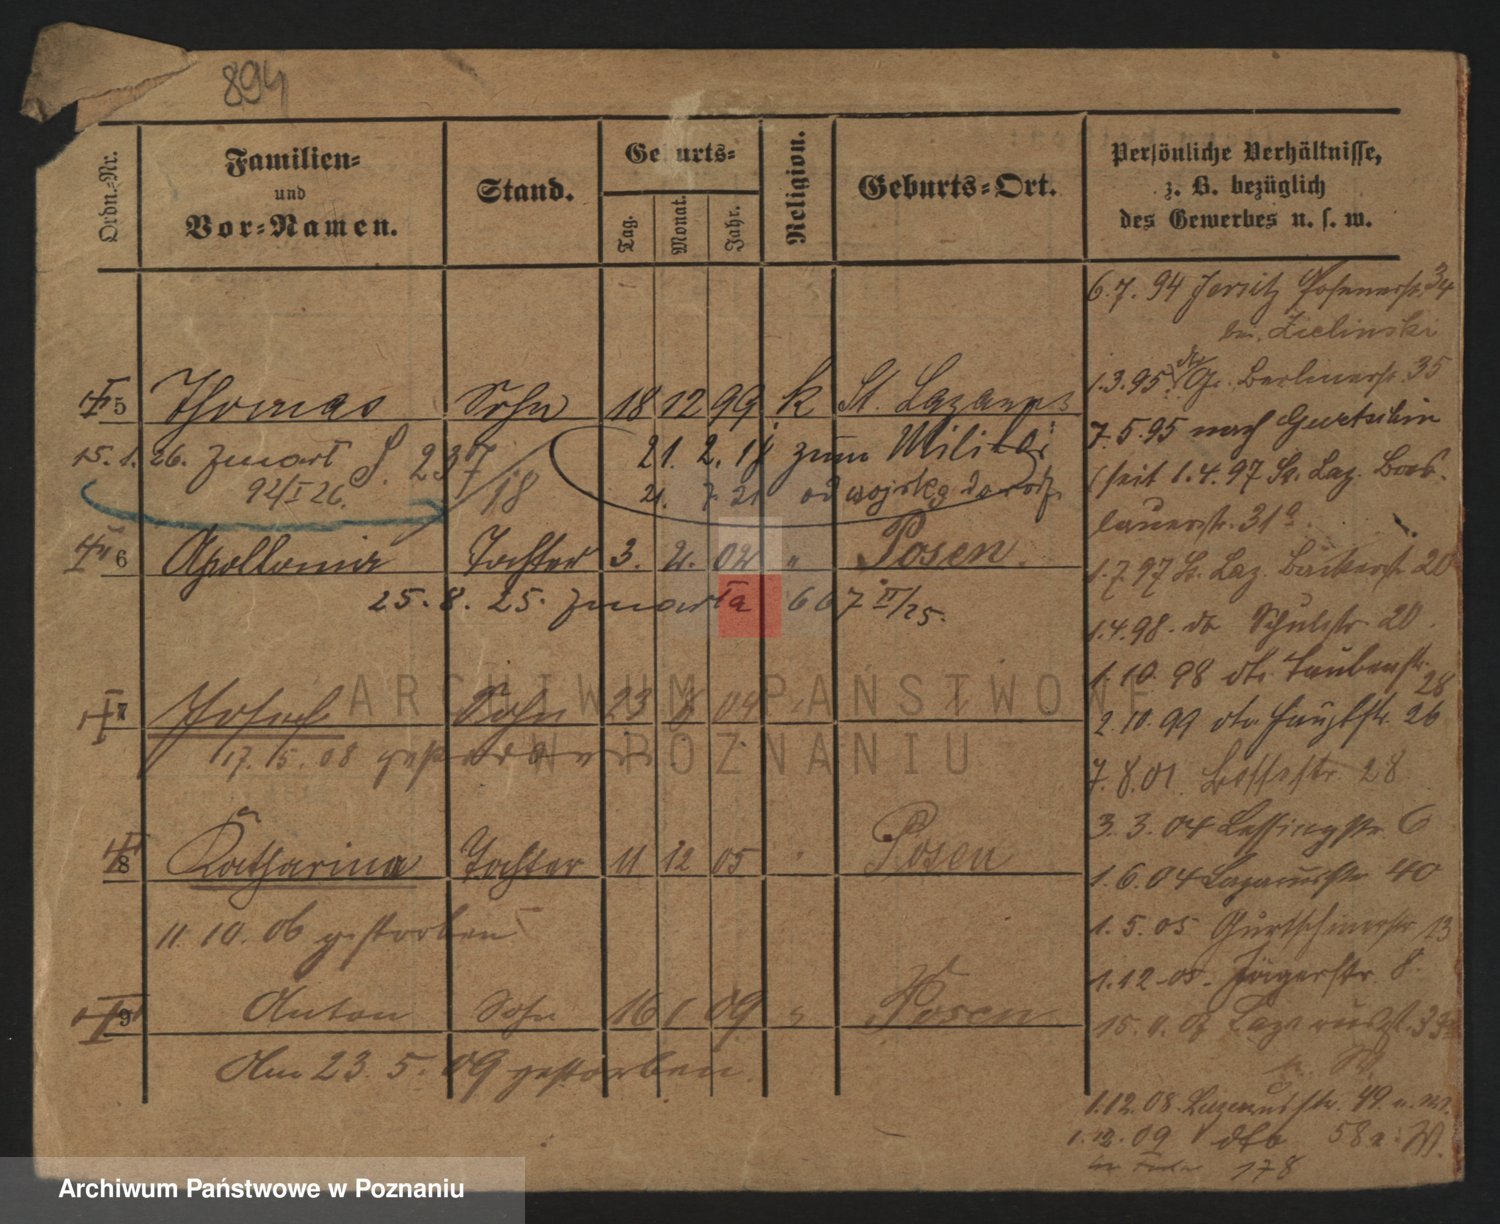 894
Ordn.-Nr.
Familien-
und
Vor-Namen.
Stand.
Geburts-
Tag.
Monat.
Jahr.
Religion.
Geburts-Ort.
Persönliche Verhältnisse,
z. B. bezüglich
des Gewerbes u. s. w.
6.7.94 Jersitz Posenerstr. 34
bei Zielinski
1.3.95 Berlinerstr. 35
7.5.95 nach Gurtschin
(seit 1.4.97 St. Laz. Bres-
lauerstr. 31a.
1.7.97 St. Laz. Bäckerstr. 20
1.4.98. do Schulstr. 20.
1.10.98 do. Taubenstr. 28
2.10.99 do Hauptstr. 26
7.8.01. 28
3.3.04 Lessingstr. 6
1.6.04 Lazarusstr. 40
1.5.05 Gurtschinerstr. 13
1.12.05. Jägerstr. 8.
Lazarusstr. 33
1.12.08. Lazarusstr. 49.
1.12.09 58
178
5 Thomas Sohn 18 12 99 k St. Lazarus
15.1.26. zmarł S. 237/18
92/I 26.
21. 2. 18 zum Militär
21. 7. 21 od wojska
6 Apollonia Tochter 3. 2. 02 " Posen.
25.8.25. zmarła 607 II/25.
7 Josef Sohn 23 04
08 gestorben
8 Katharina Tochter 11 12 05 " Posen
11.10.06 gestorben
9 Anton Sohn 16 1 09 " Posen
Am 23.5.09 gestorben.
ARCHIWUM PAŃSTWOWE
W POZNANIU
Archiwum Państwowe w Poznaniu